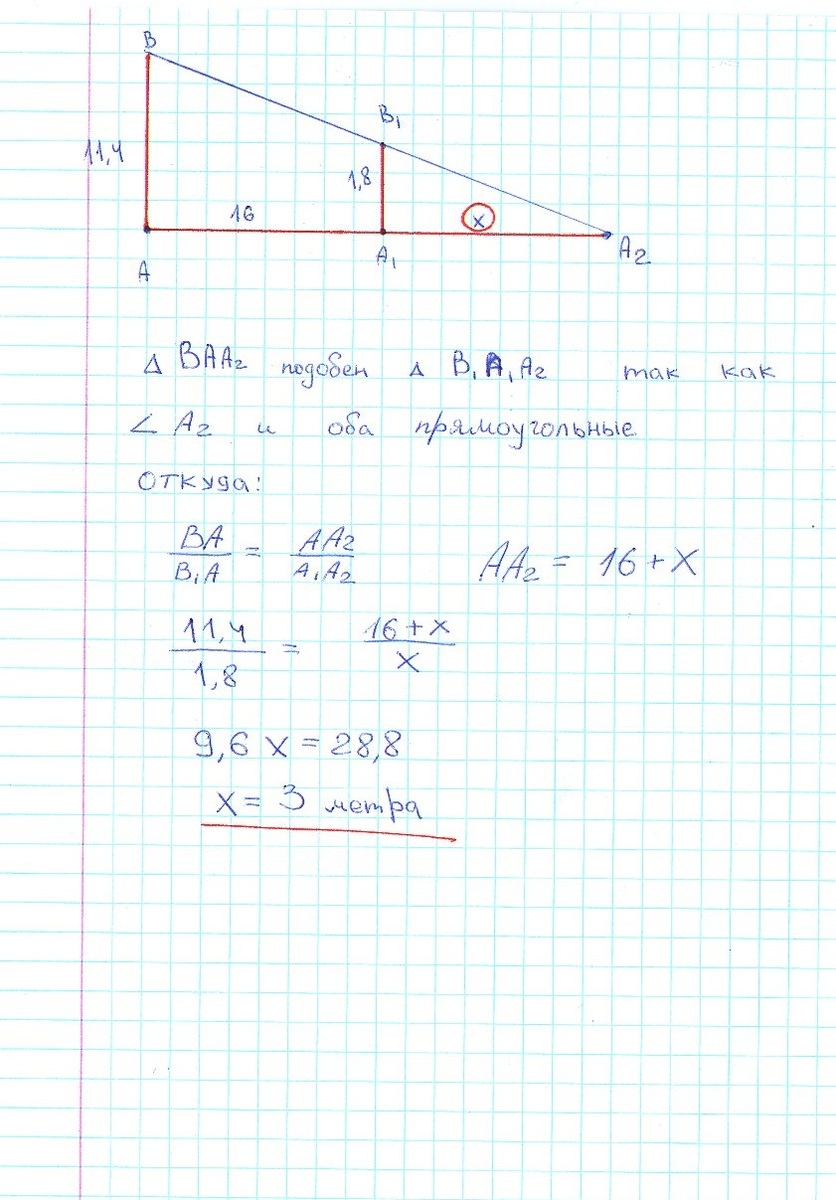 B
B₁
11,4
1,8
16
x
A
A₁
A₂
Δ BAA₂ подобен Δ B₁A₁A₂ так как
∠ A₂ и оба прямоугольные
откуда:
BA/B₁A = AA₂/A₁A₂ AA₂ = 16 + x
11,4/1,8 = 16 + x/x
9,6 x = 28,8
x = 3 метра